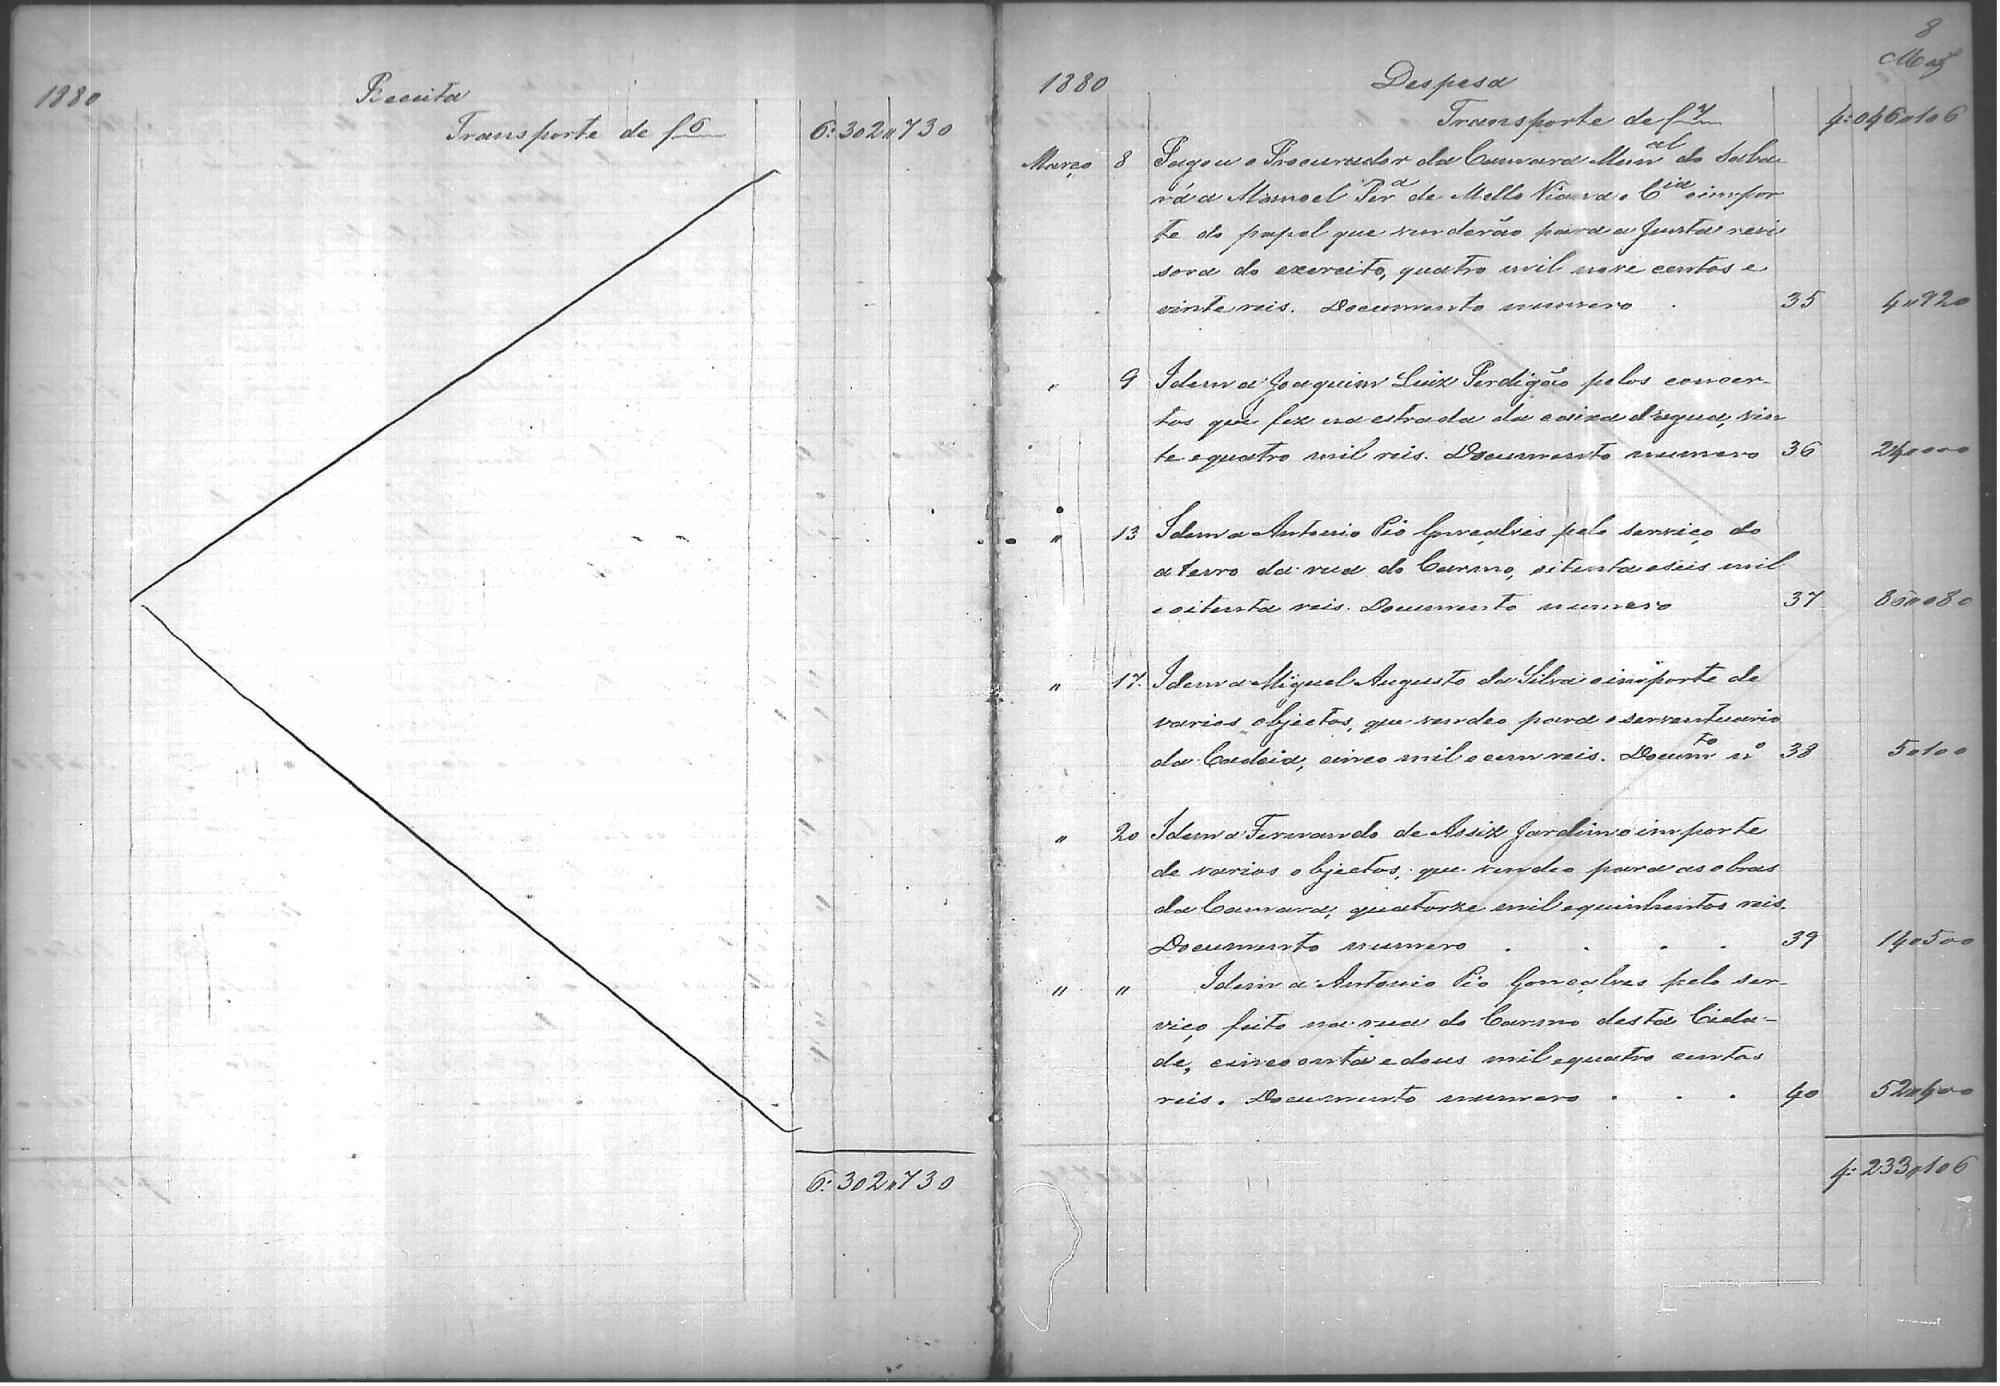 1880
Receita
Transporte de f 6 6:302"730
6:302"730
8
1880
Despesa
Transporte de f 7 4:046"106
Março 8 Pagou o Procurador da Camara Mun.al do Saba-
rá a Manoel Per.a de Mello Vianna e C.ia o impor
te do papel que venderão para a Junta revi
sora do exercito, quatro mil nove centos e
vinte reis. Documento numero . 35 4"920
" 9 Idem a Joaquim Luiz Perdigão pelos concer-
tos que fez na estrada da caixa d'agua, vin
te e quatro mil reis. Documento numero 36 24"000
" 13 Idem a Antonio Pio Gonçalves pelo serviço do
aterro da rua do Carmo, oitenta e seis mil
e oitenta reis. Documento numero 37 86"080
" 17. Idem a Miguel Augusto da Silva o importe de
varios objectos, que vendeo para o serventuario
da Cadeia, cinco mil e cem reis. Docum.to n.o 38 5"100
" 20 Idem a Fernando de Assiz Jardim o importe
de varios objectos, que vendeo para as obras
da Camara, quatorze mil e quinhentos reis.
Documento numero . . . . 39 14"500
" " Idem a Antonio Pio Gonçalves pelo ser-
viço feito na rua do Carmo desta Cida-
de, cincoenta e dous mil e quatro centos
reis. Documento numero . . . 40 52"400
4:233"106